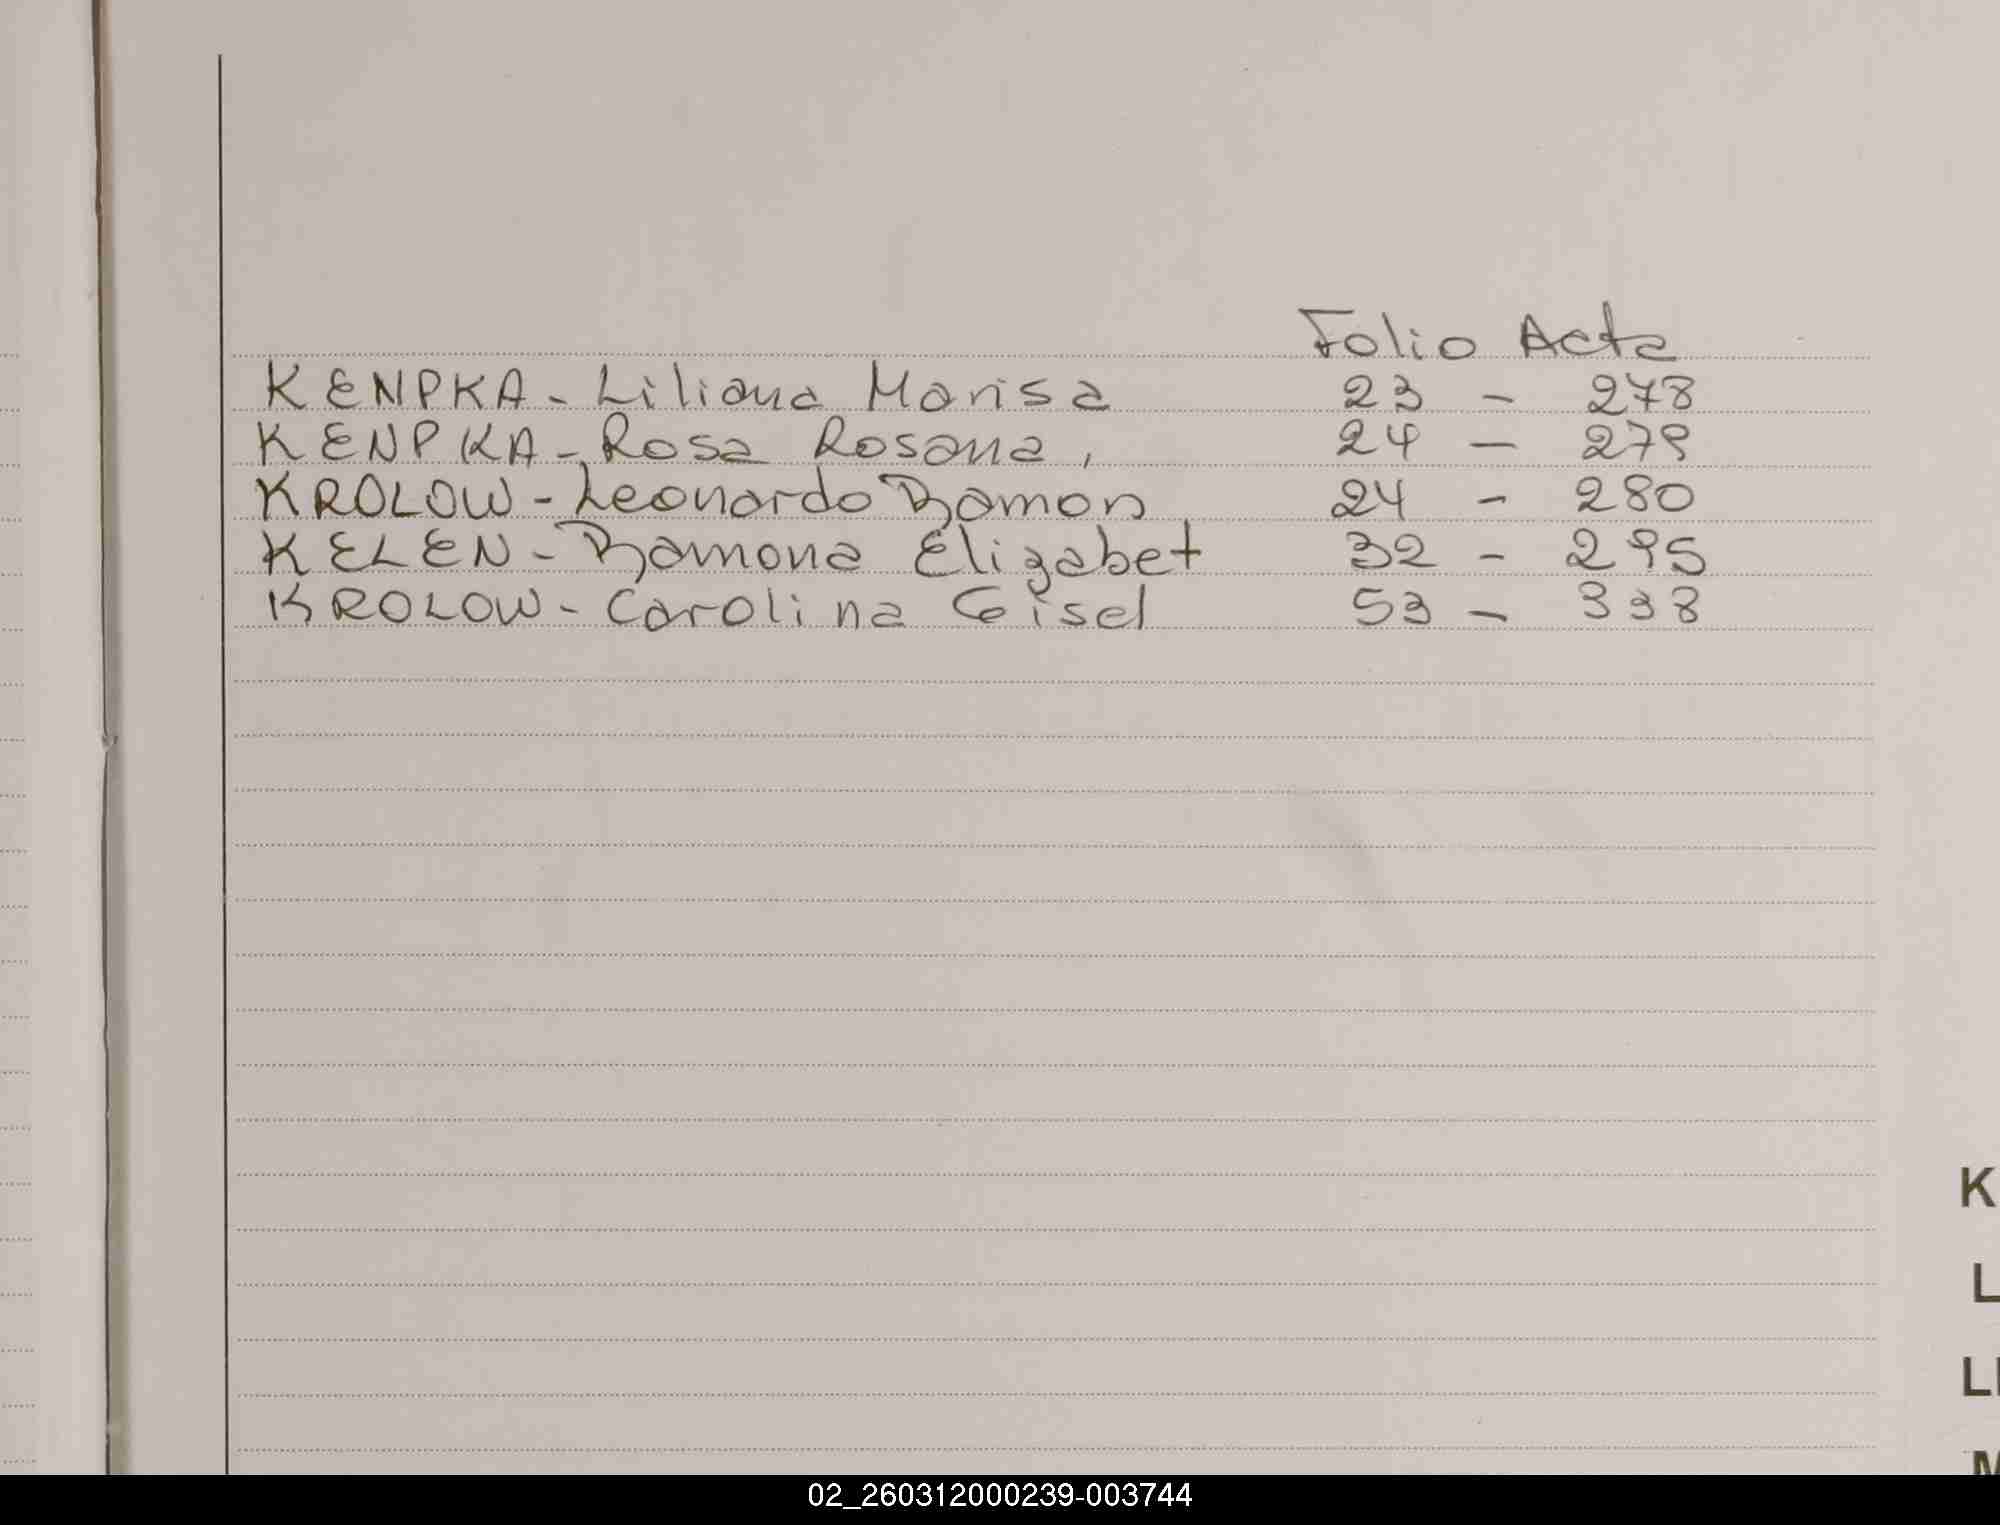 Folio Acta
KENPKA - Liliana Marisa 23 - 278
KENPKA - Rosa Rosana, 24 - 279
KROLOW - Leonardo Ramon 24 - 280
KELEN - Ramona Elizabet 32 - 295
KROLOW - Carolina Gisel 53 - 338
K
L
LL
M
02_260312000239-003744